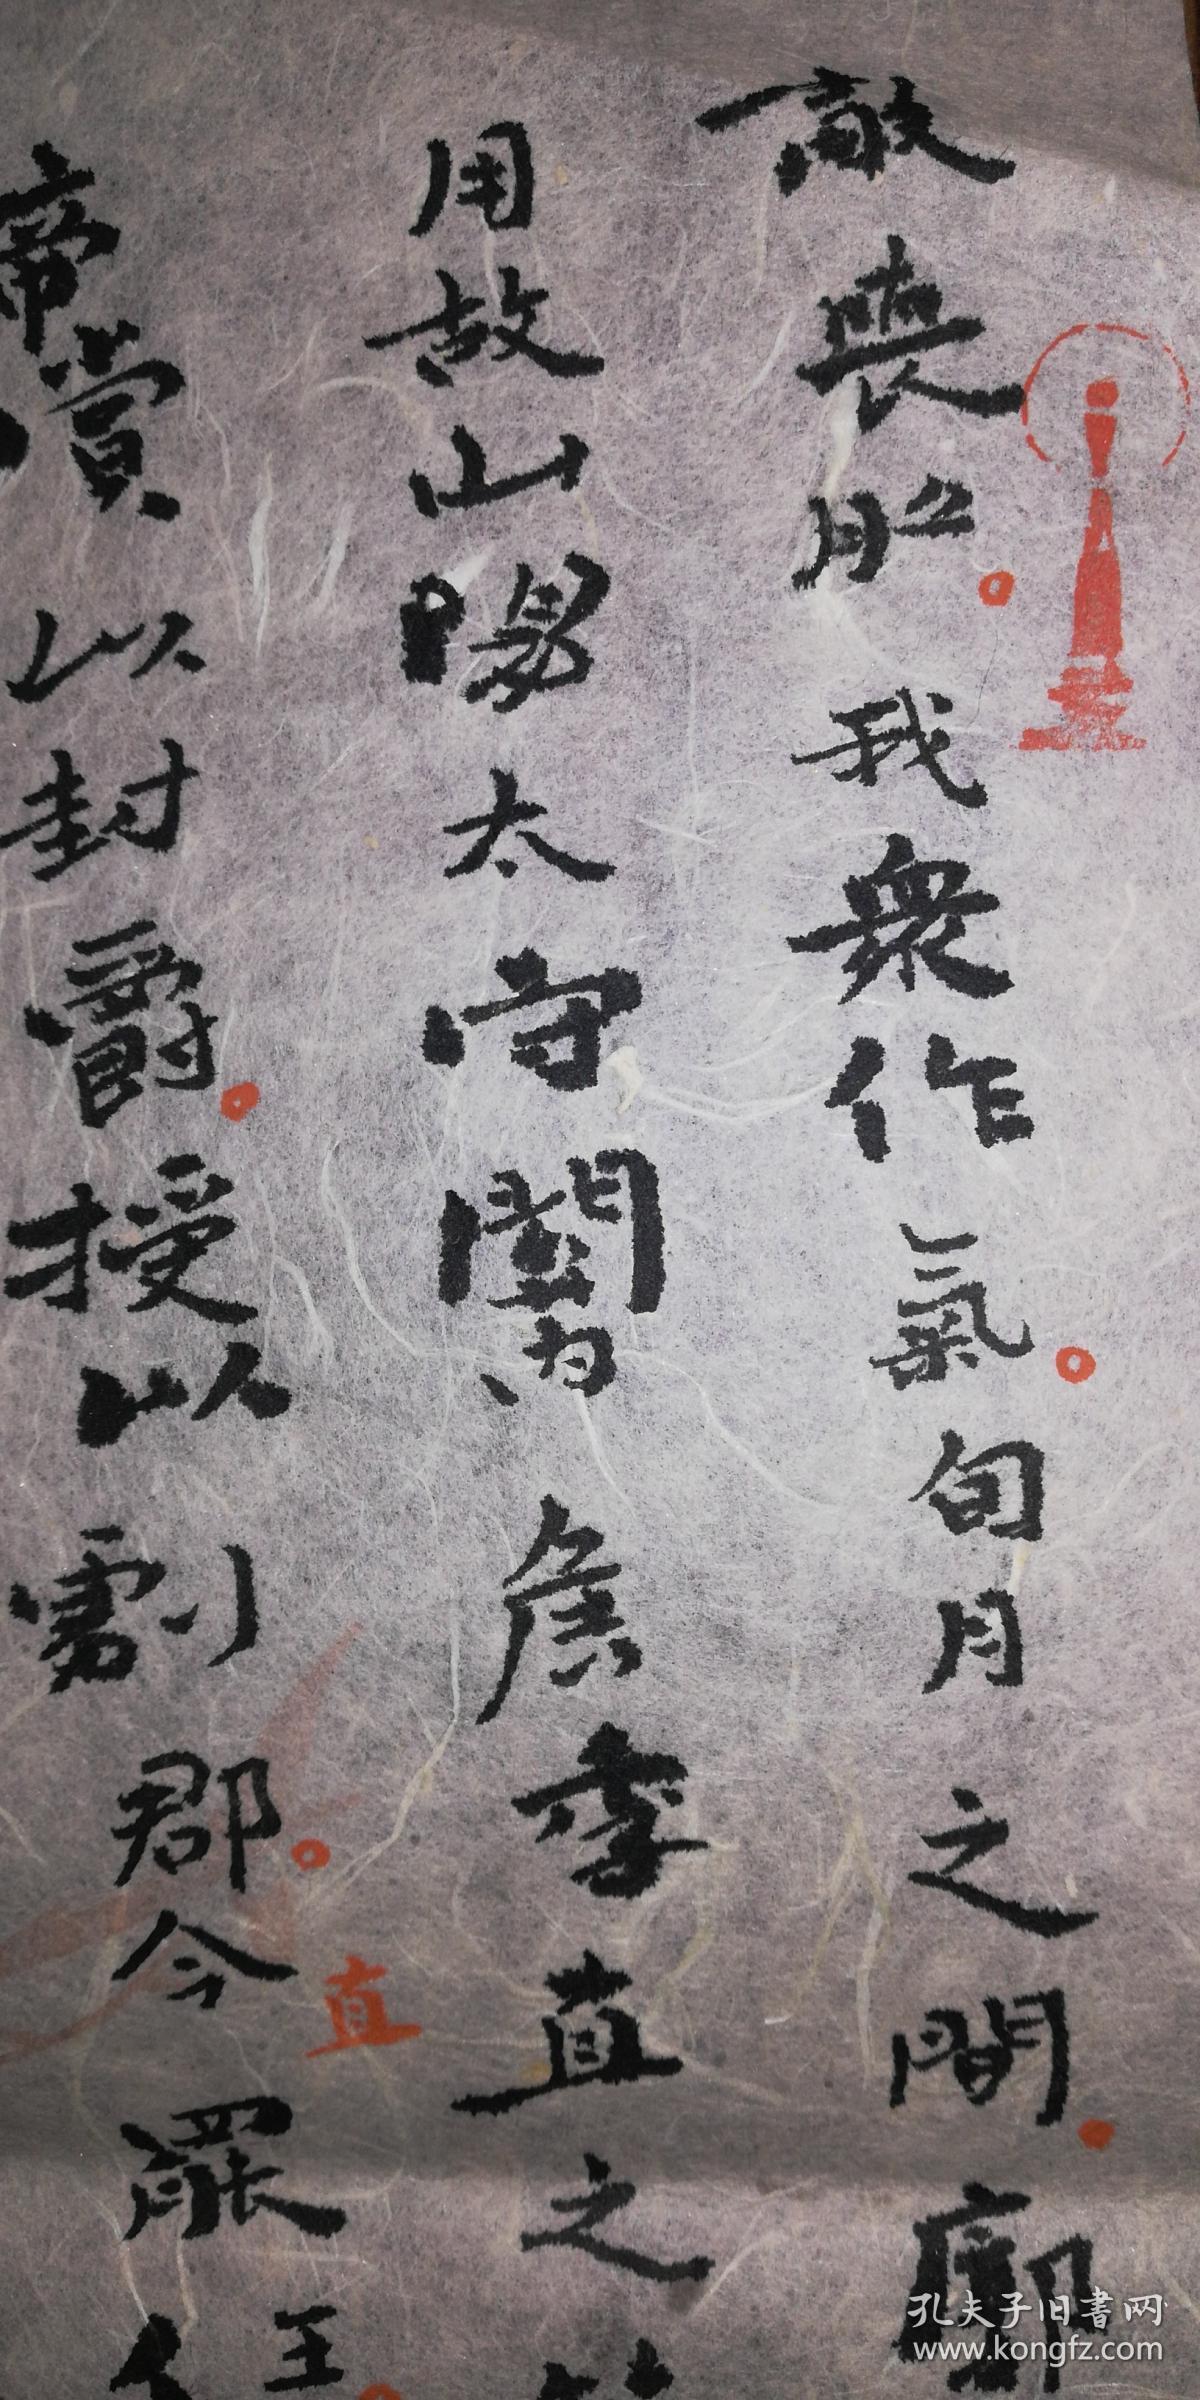 敵喪膽。我衆作氣。旬月之間。廓
用故山陽太守關內侯季直之
帝賞以封爵。授以劇郡。今
直
罷
任
孔夫子旧書网
www.kongfz.com